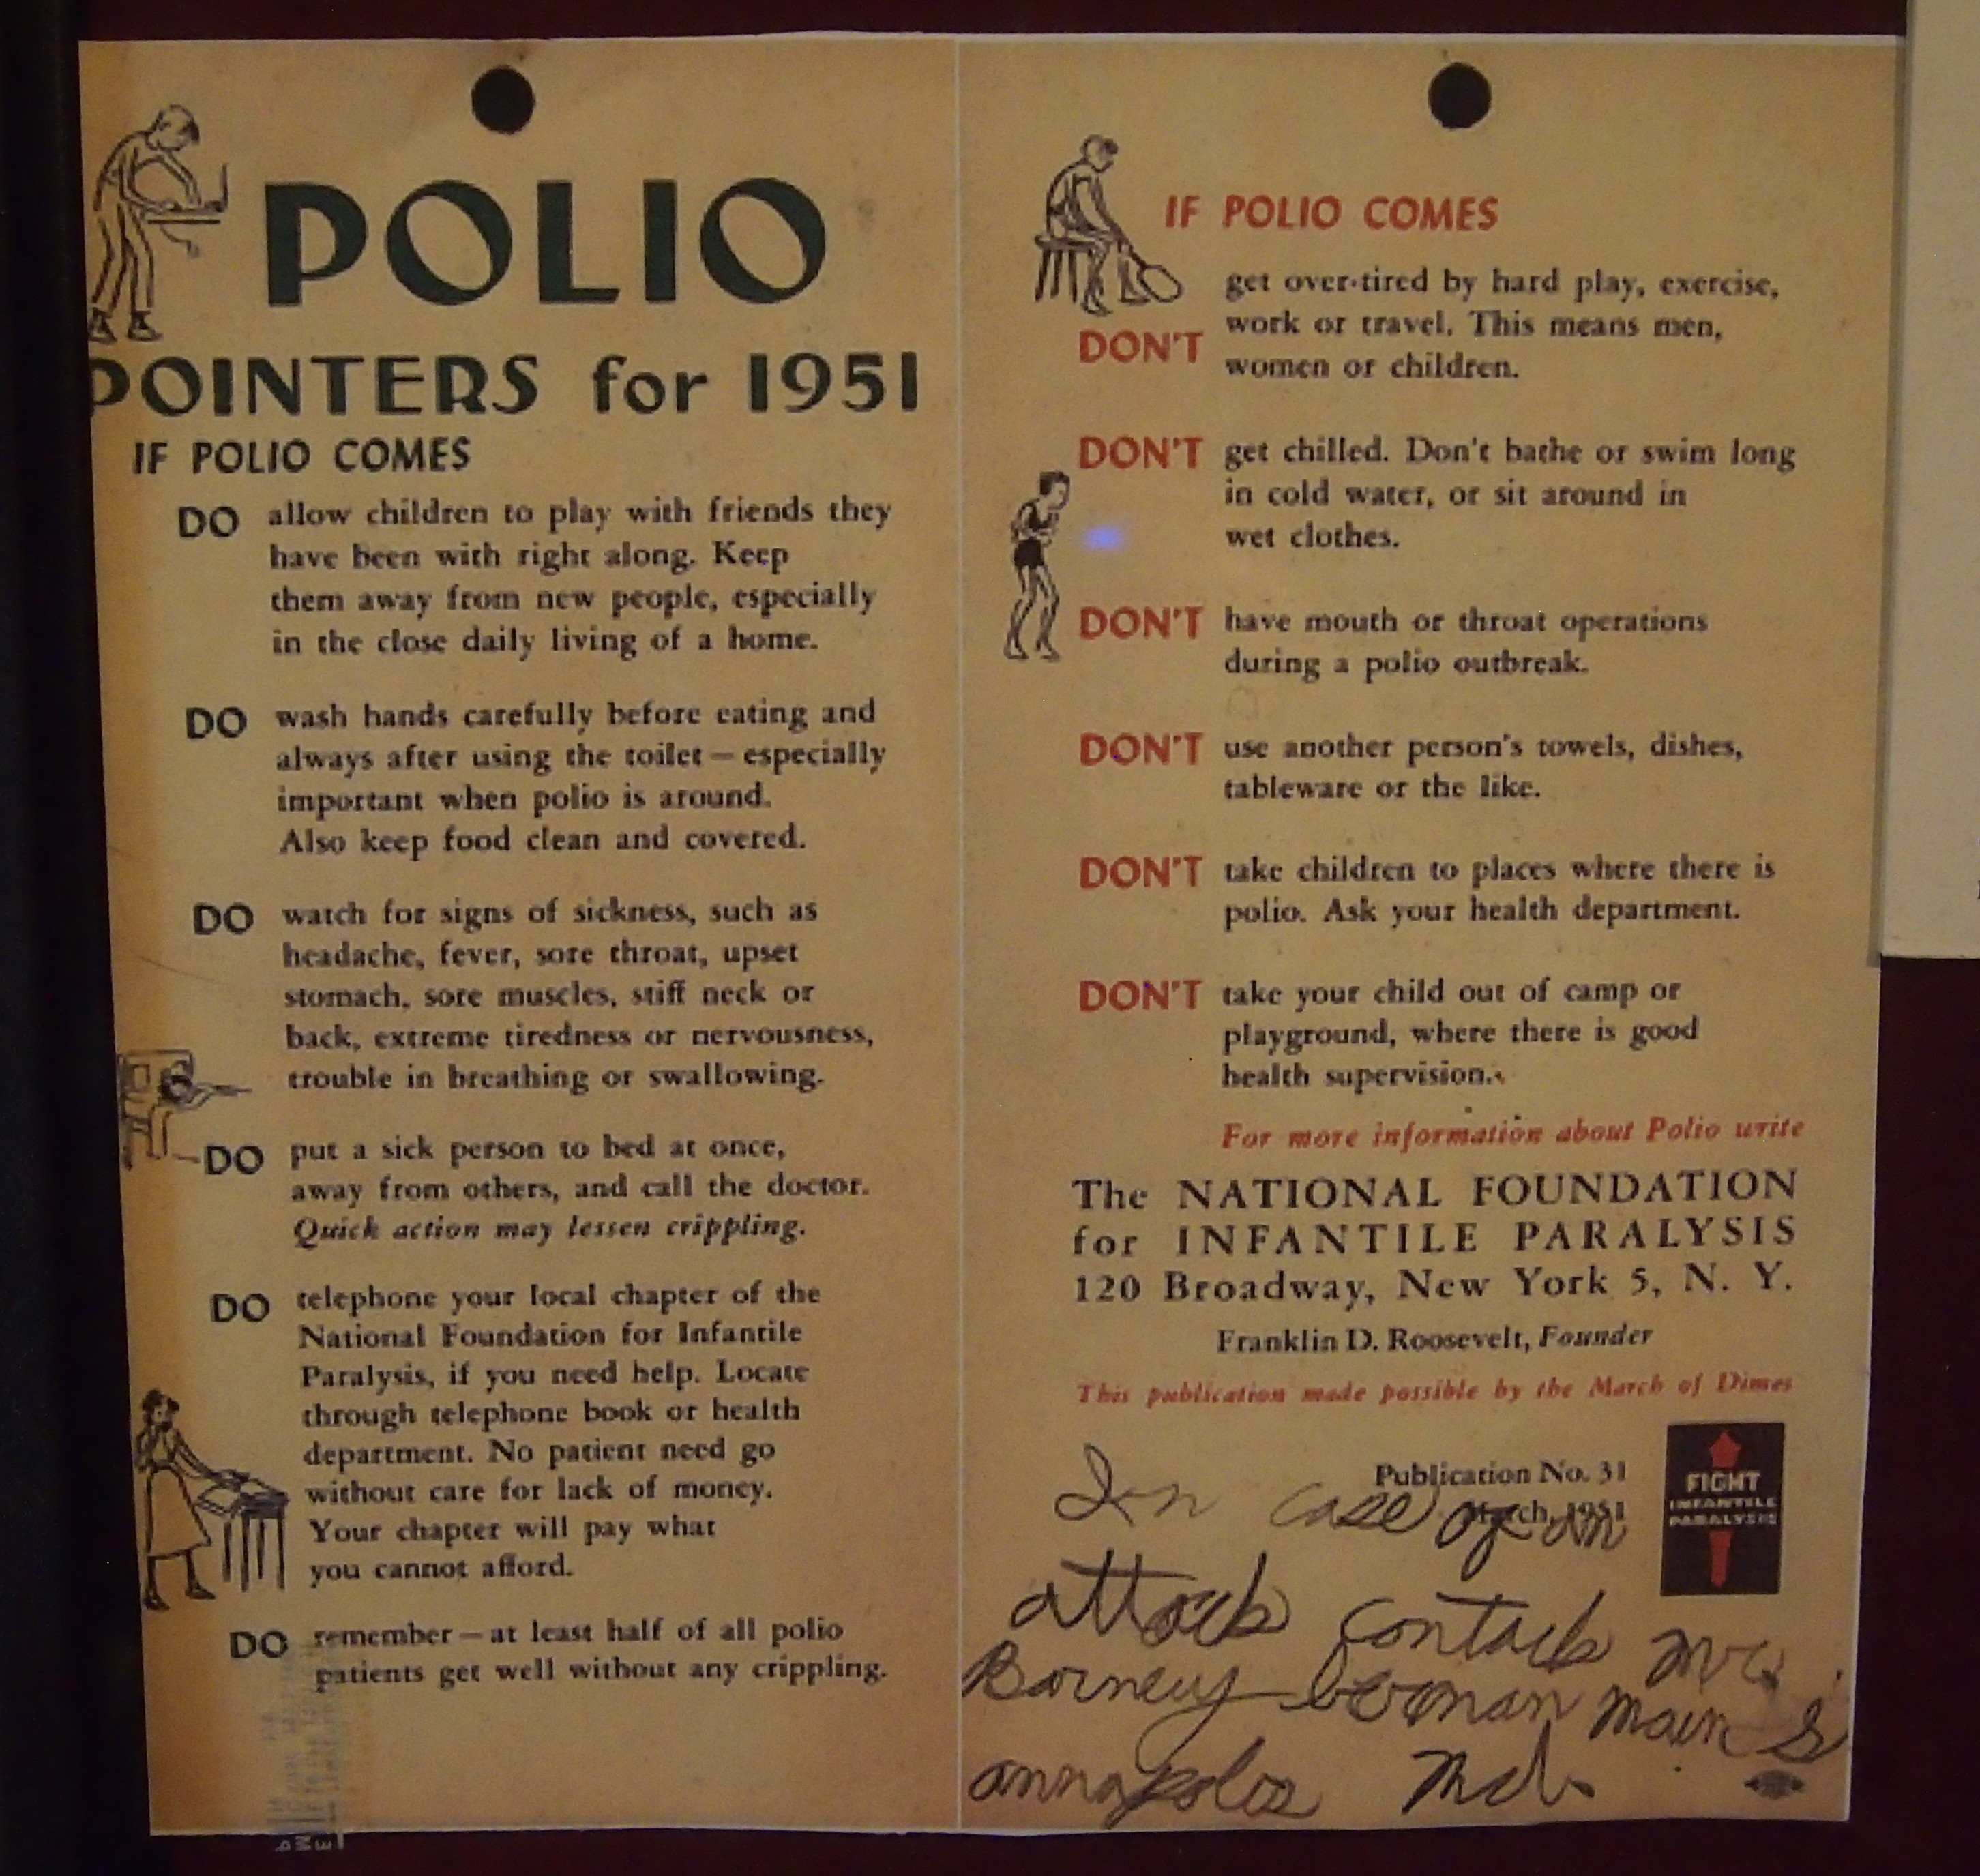 POLIO
POINTERS for 1951
IF POLIO COMES
DO allow children to play with friends they
have been with right along. Keep
them away from new people, especially
in the close daily living of a home.
DO wash hands carefully before eating and
always after using the toilet — especially
important when polio is around.
Also keep food clean and covered.
DO watch for signs of sickness, such as
headache, fever, sore throat, upset
stomach, sore muscles, stiff neck or
back, extreme tiredness or nervousness,
trouble in breathing or swallowing.
DO put a sick person to bed at once,
away from others, and call the doctor.
Quick action may lessen crippling.
DO telephone your local chapter of the
National Foundation for Infantile
Paralysis, if you need help. Locate
through telephone book or health
department. No patient need go
without care for lack of money.
Your chapter will pay what
you cannot afford.
DO remember — at least half of all polio
patients get well without any crippling.
IF POLIO COMES
DON'T get over-tired by hard play, exercise,
work or travel. This means men,
women or children.
DON'T get chilled. Don't bathe or swim long
in cold water, or sit around in
wet clothes.
DON'T have mouth or throat operations
during a polio outbreak.
DON'T use another person's towels, dishes,
tableware or the like.
DON'T take children to places where there is
polio. Ask your health department.
DON'T take your child out of camp or
playground, where there is good
health supervision.
For more information about Polio write
The NATIONAL FOUNDATION
for INFANTILE PARALYSIS
120 Broadway, New York 5, N. Y.
Franklin D. Roosevelt, Founder
This publication made possible by the March of Dimes
Publication No. 31
March, 1951
FIGHT
INFANTILE
PARALYSIS
In case of an
attack contack
Barney main
annapolis Md.